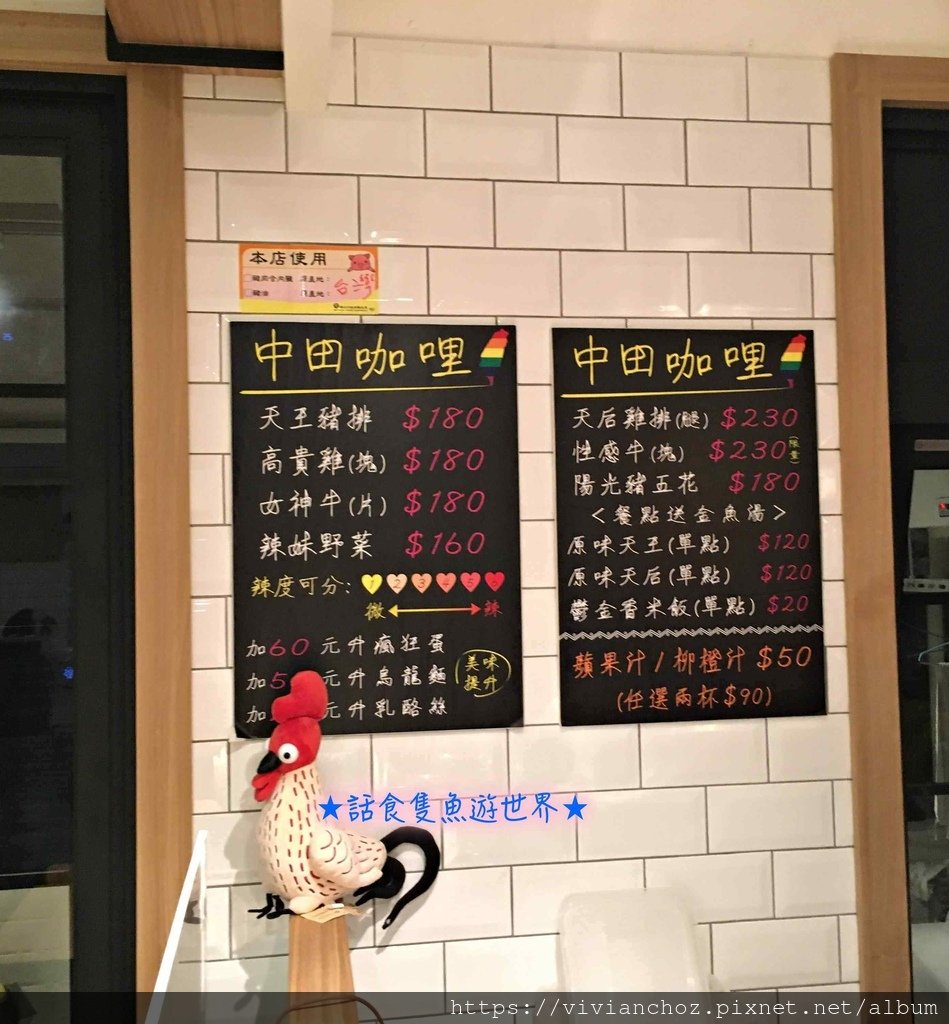 本店使用
豬肉原產地：
豬油 原產地：
台灣
中田咖哩
天王豬排 $180
高貴雞(塊) $180
女神牛(片) $180
辣妹野菜 $160
辣度可分： 1 2 3 4 5 6
微 辣
加60元升瘋狂蛋
加5 元升烏龍麵
加 元升乳酪絲
美味
提升
中田咖哩
天后雞排(腿) $230
性感牛(塊) $230 (限量)
陽光豬五花 $180
<餐點送金魚湯>
原味天王(單點) $120
原味天后(單點) $120
鬱金香米飯(單點) $20
蘋果汁/柳橙汁 $50
(任選兩杯$90)
★話食隻魚遊世界★
https://vivianchoz.pixnet.net/album